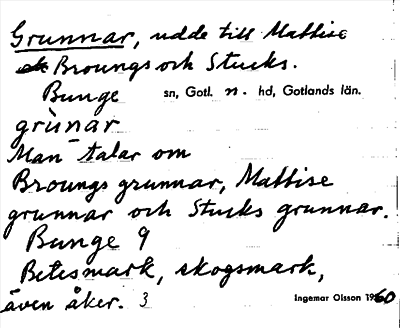 Grunnar, udde till Mattise
Broungs och Stucks.
Bunge sn, Gotl. n. hd, Gotlands län.
grùnar
Man talar om
Broungs grunnar, Mattise
grunnar och Stucks grunnar.
Bunge 9
Betesmark, skogsmark,
även åker. 3
Ingemar Olsson 1960